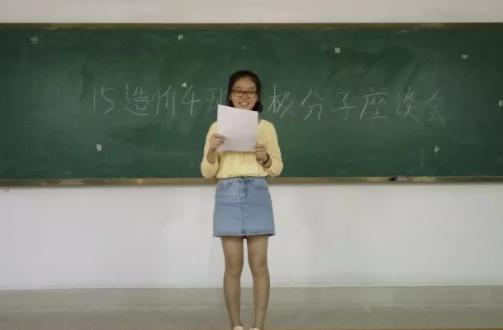 15造价4班 极分子座谈会